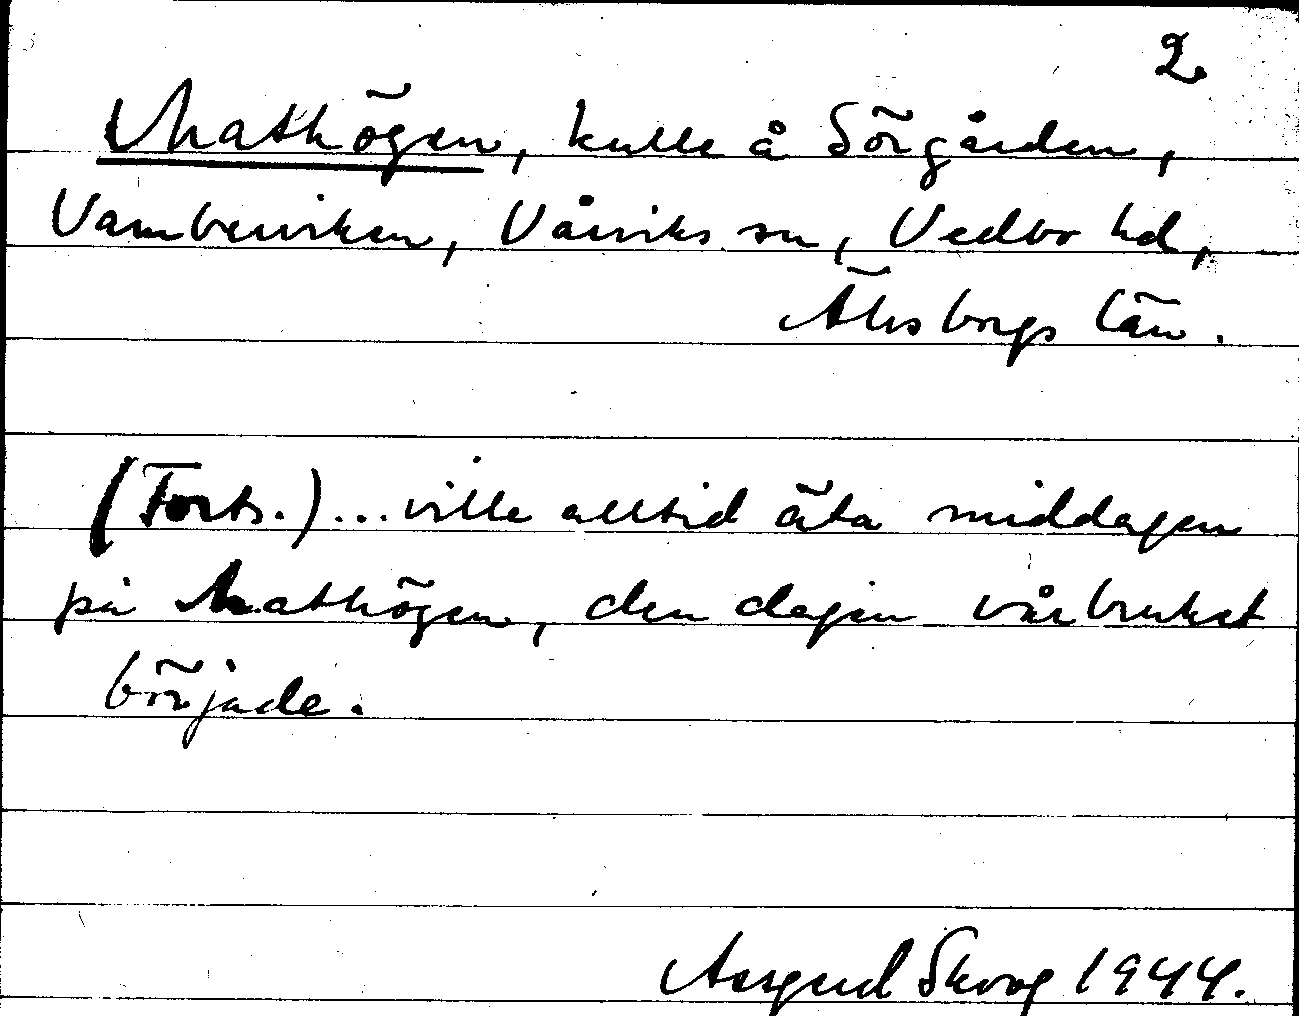 2.
Mathögen, kulle å Sörgården,
Vambenviken, Vårviks sn, Vedbo hd,
Älvsborgs län.
(Forts.)... ville alltid äta middagen
på Mathögen, den dagen vårbruket
började.
Skoog 1944.